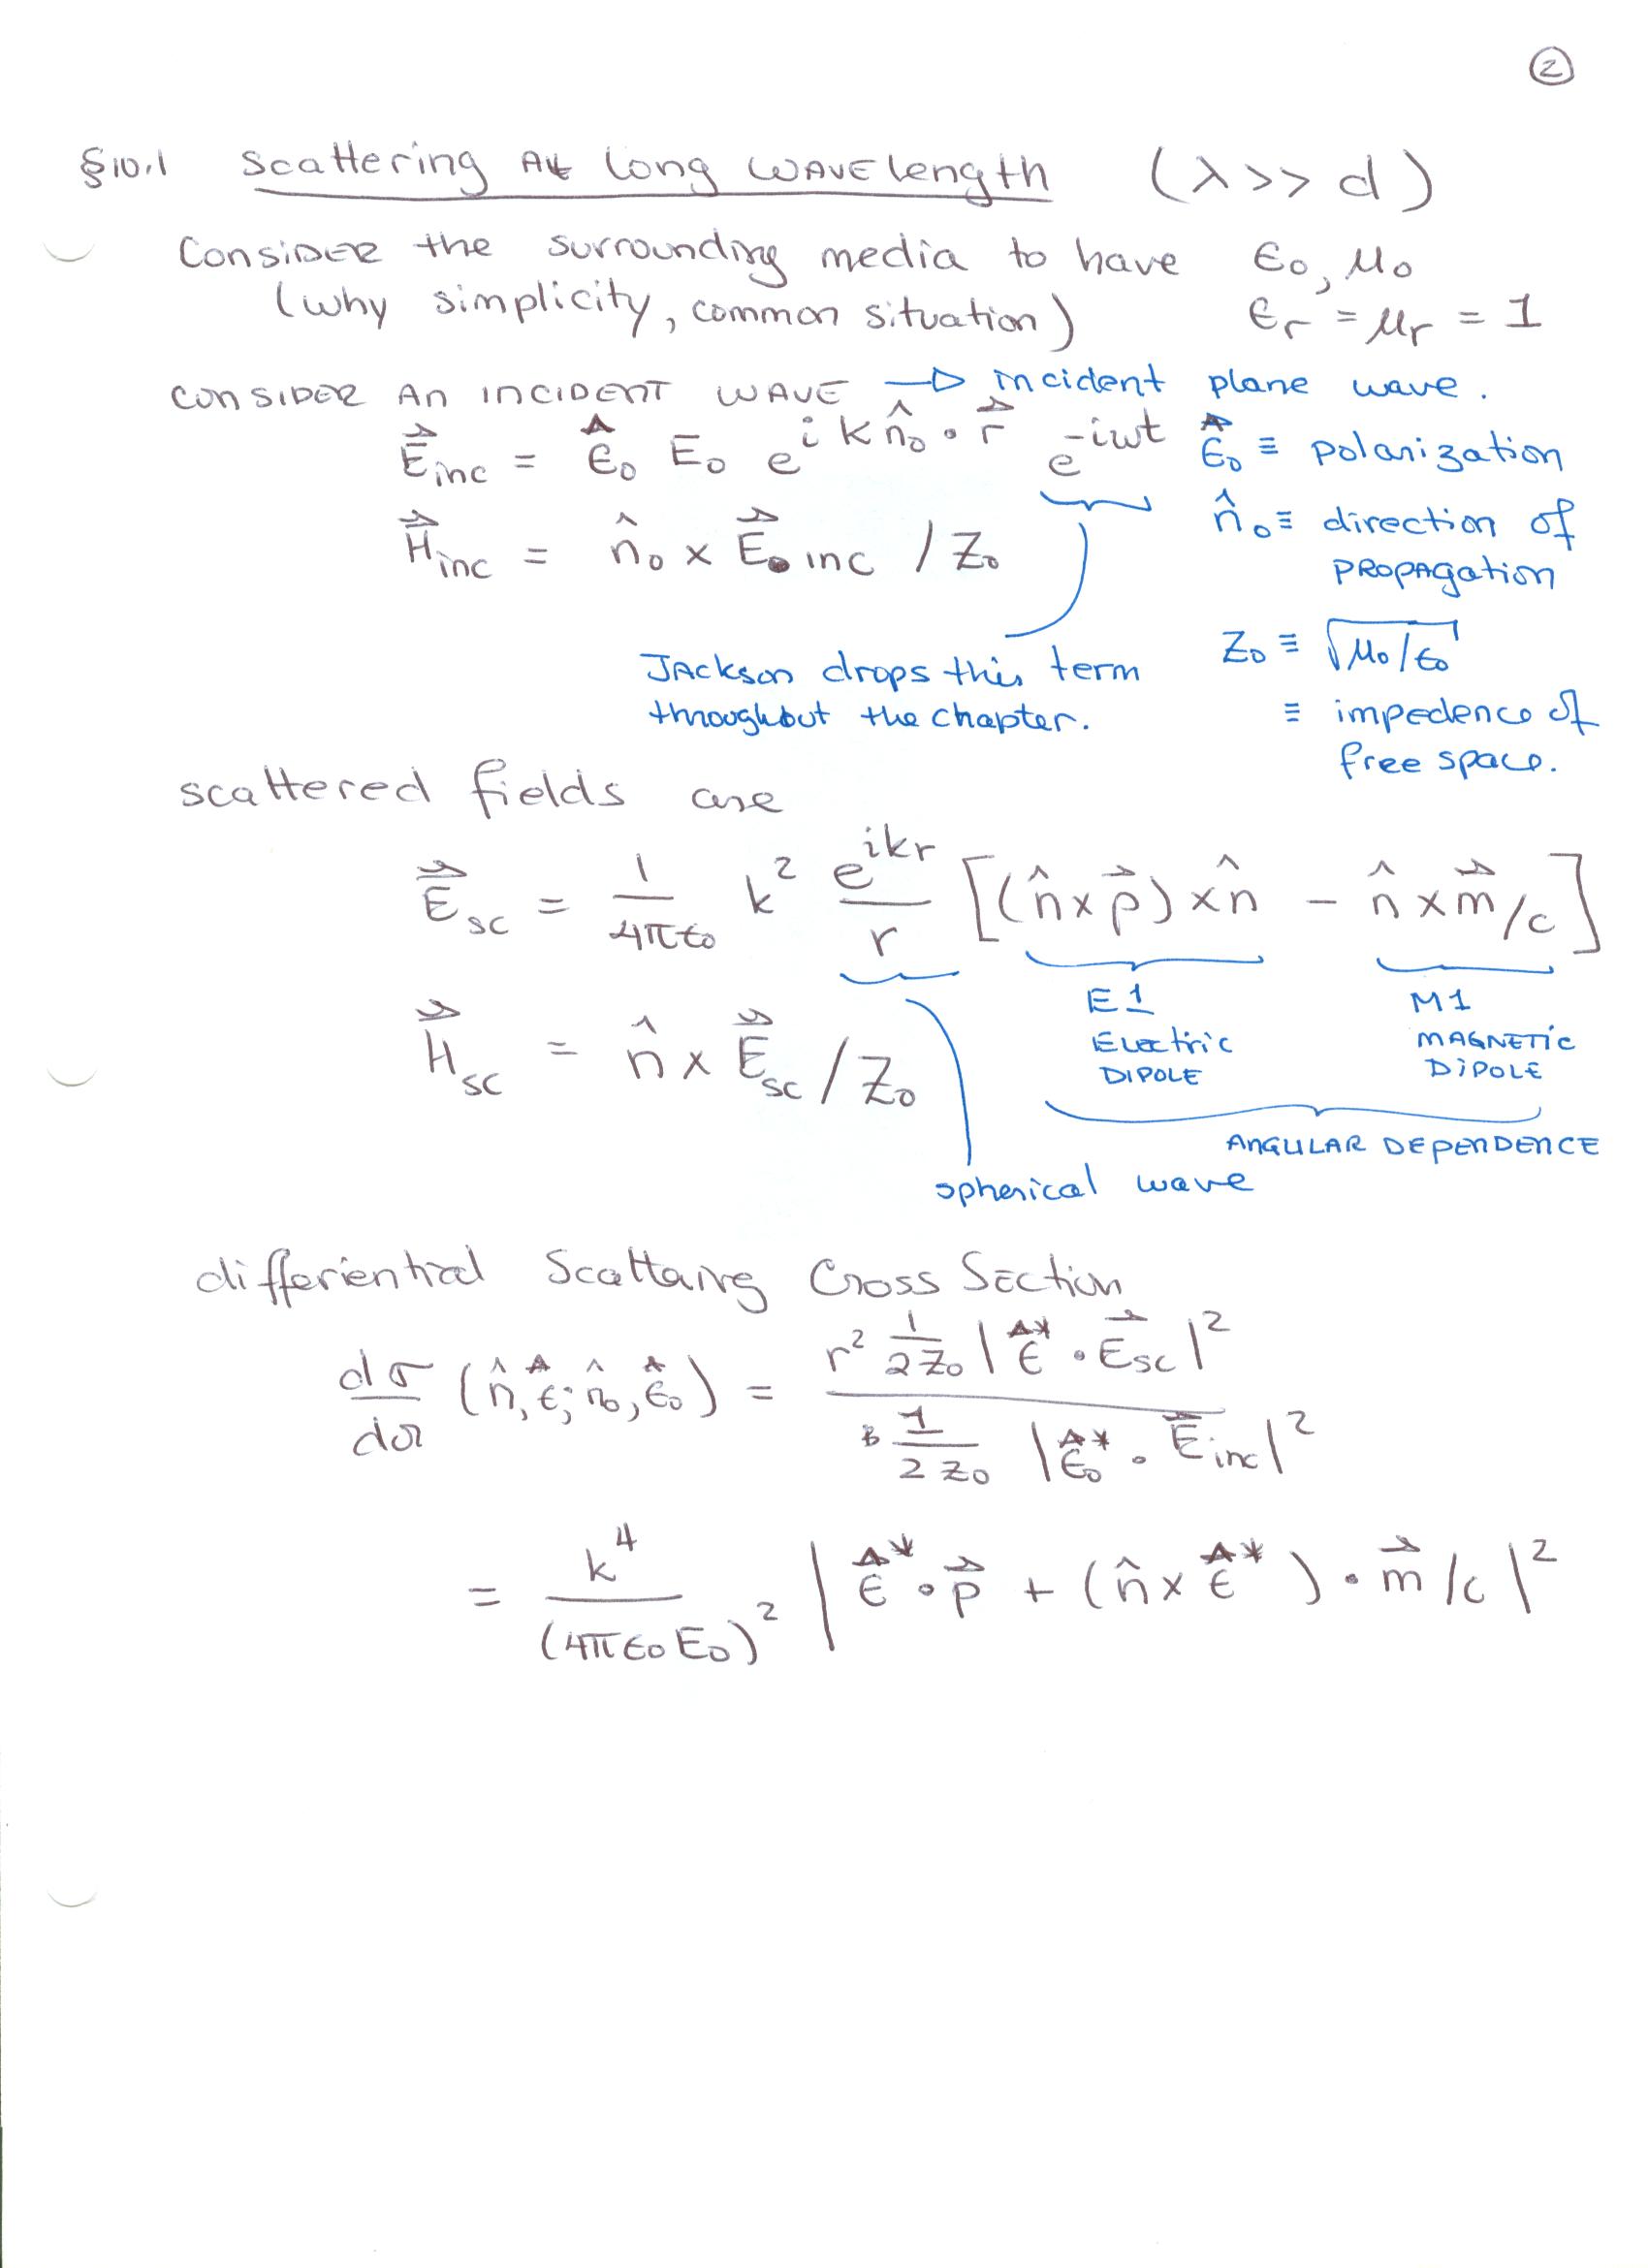 ②
§10.1 Scattering At long wavelength (λ >> d)
Consider the surrounding media to have ϵ₀, μ₀
(why simplicity, common situation) ϵᵣ = μᵣ = 1
CONSIDER AN INCIDENT WAVE → incident plane wave.
E⃗_inc = ϵ̂₀ E₀ e^{i k n̂₀ • r⃗} e^{-iωt} ϵ̂₀ ≡ polarization
n̂₀ ≡ direction of
PROPAGATION
H⃗_inc = n̂₀ × E⃗_inc / Z₀
Z₀ ≡ √(μ₀/ϵ₀)
≡ impedence of
free space.
Jackson drops this term
throughout the chapter.
scattered fields are
E⃗_sc = 1/(4πϵ₀) k² e^{ikr}/r [(n̂×p⃗)×n̂ − n̂×m⃗/c]
E1
Electric
DIPOLE
M1
MAGNETIC
DIPOLE
H⃗_sc = n̂ × E⃗_sc / Z₀
ANGULAR DEPENDENCE
spherical wave
differiential Scattering Cross Section
dσ/dΩ (n̂, ϵ̂; n̂₀, ϵ̂₀) = r² 1/(2Z₀) |ϵ̂* • E⃗_sc|² / 1/(2Z₀) |ϵ̂₀* • E⃗_inc|²
= k⁴/(4πϵ₀E₀)² |ϵ̂* • p⃗ + (n̂ × ϵ̂*) • m⃗/c|²